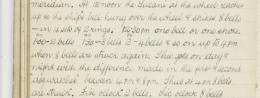 meridian. At 12 noon the Indians at the wheel strikes
up to the ship's bell hung over the wheel & strikes 8 bells
- in sets of 2 rings. 12-30 pm one bell or one stroke.
1 oc 2 bells 1.30 3 bells 2 - 4 bells & so on up to 4 pm
when 8 bells are struck again. This goes on day &
night with the difference made in the first & second
dogwatches between 4 pm & 8 pm. Thus at 4 pm 8 bells
are struck. Five oclock 2 bells, Six oclock 4 bells